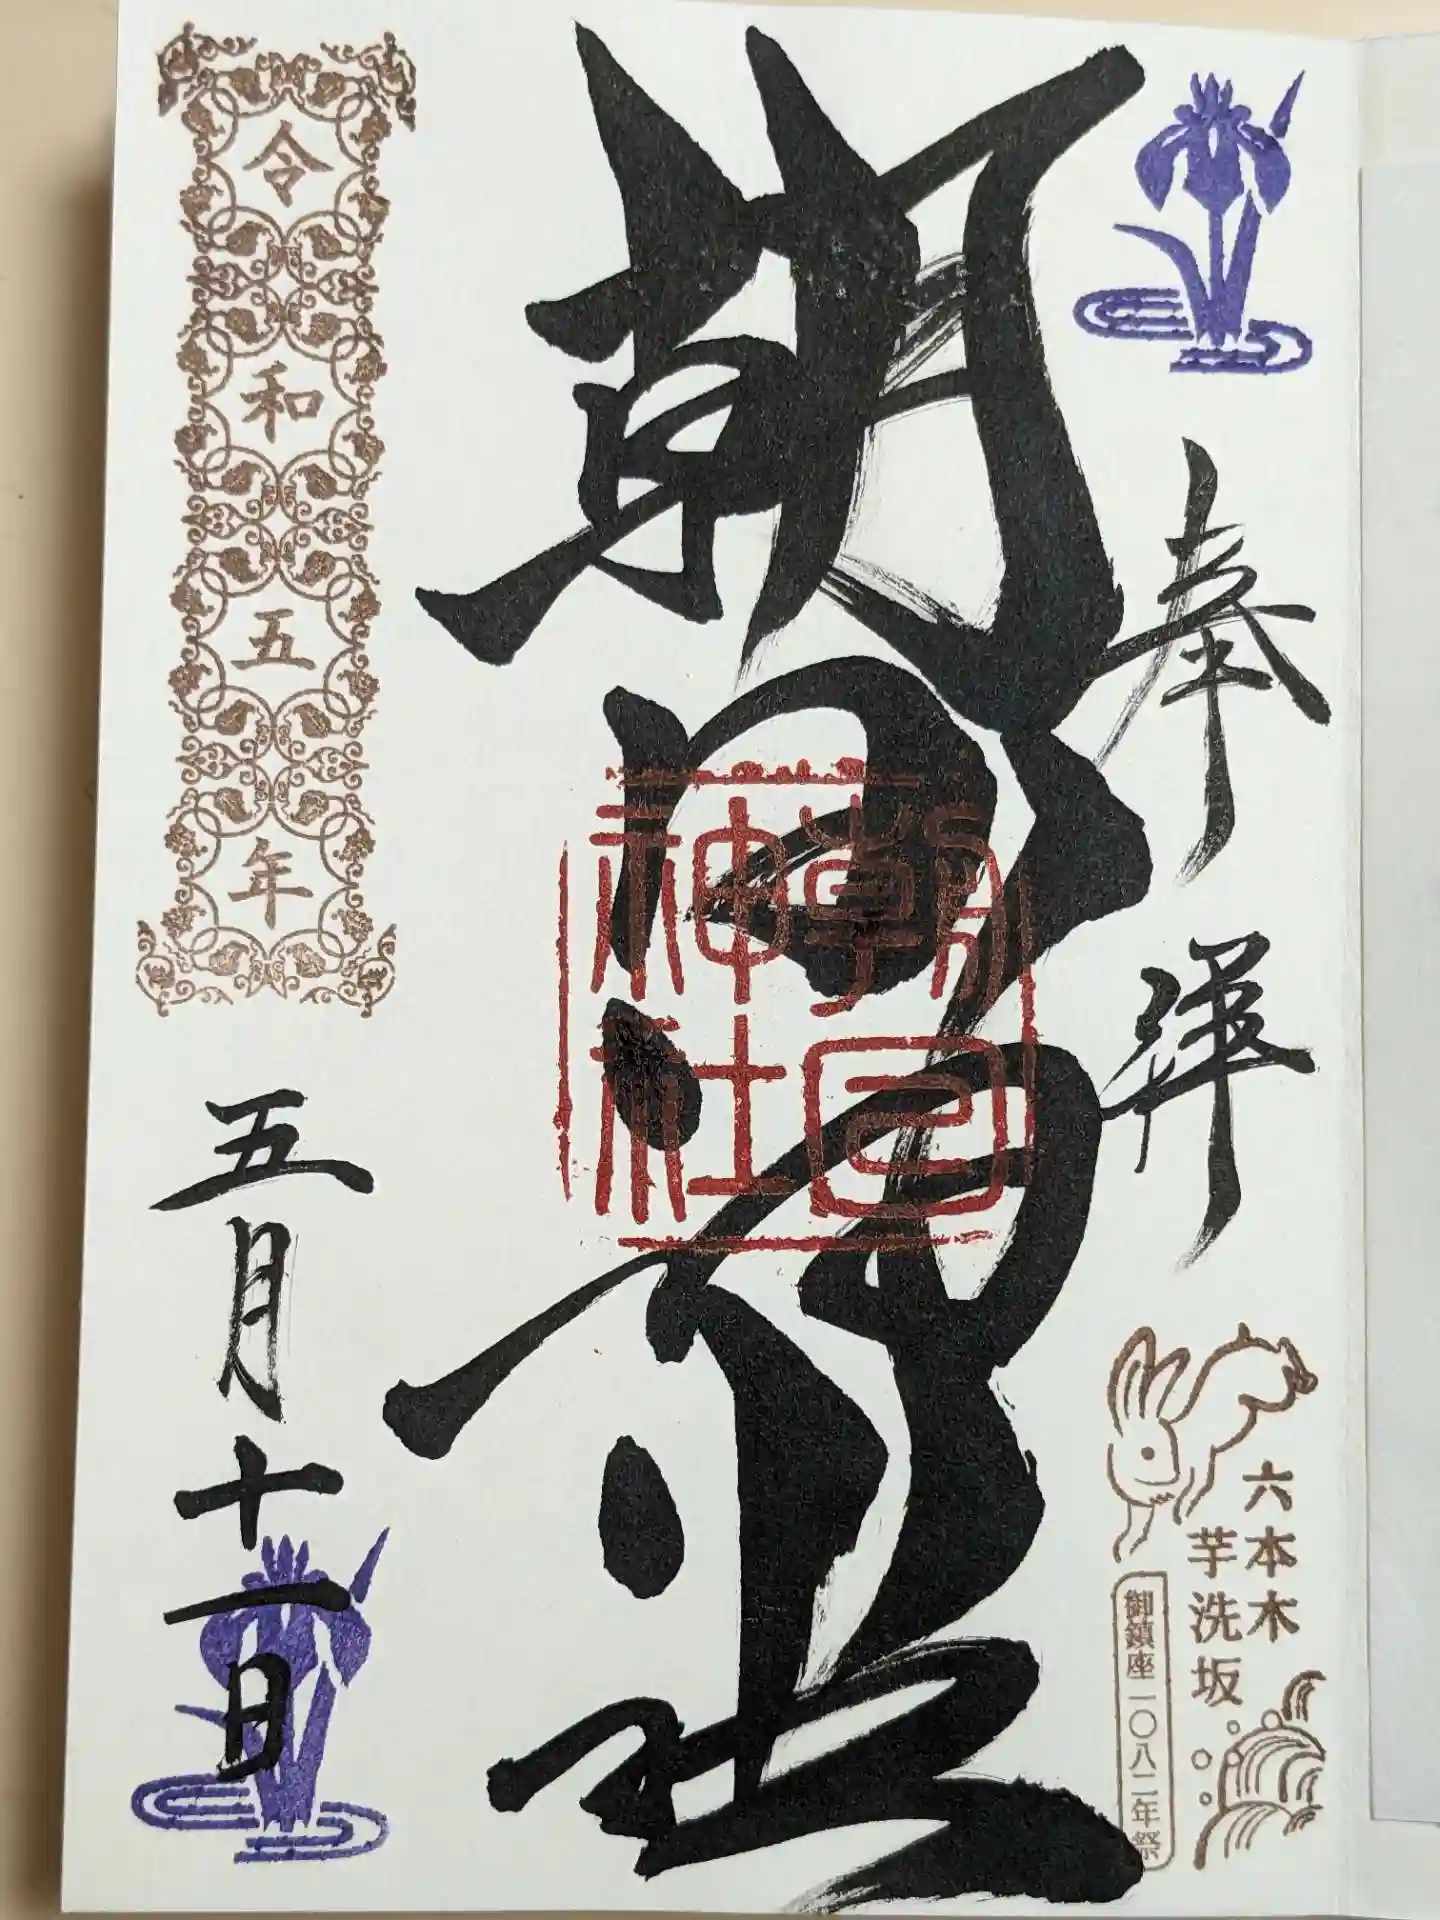 奉拝
六本木
芋洗坂
御鎮座一〇八二年祭
朝日神社
朝日
神社
令和五年
五月十一日